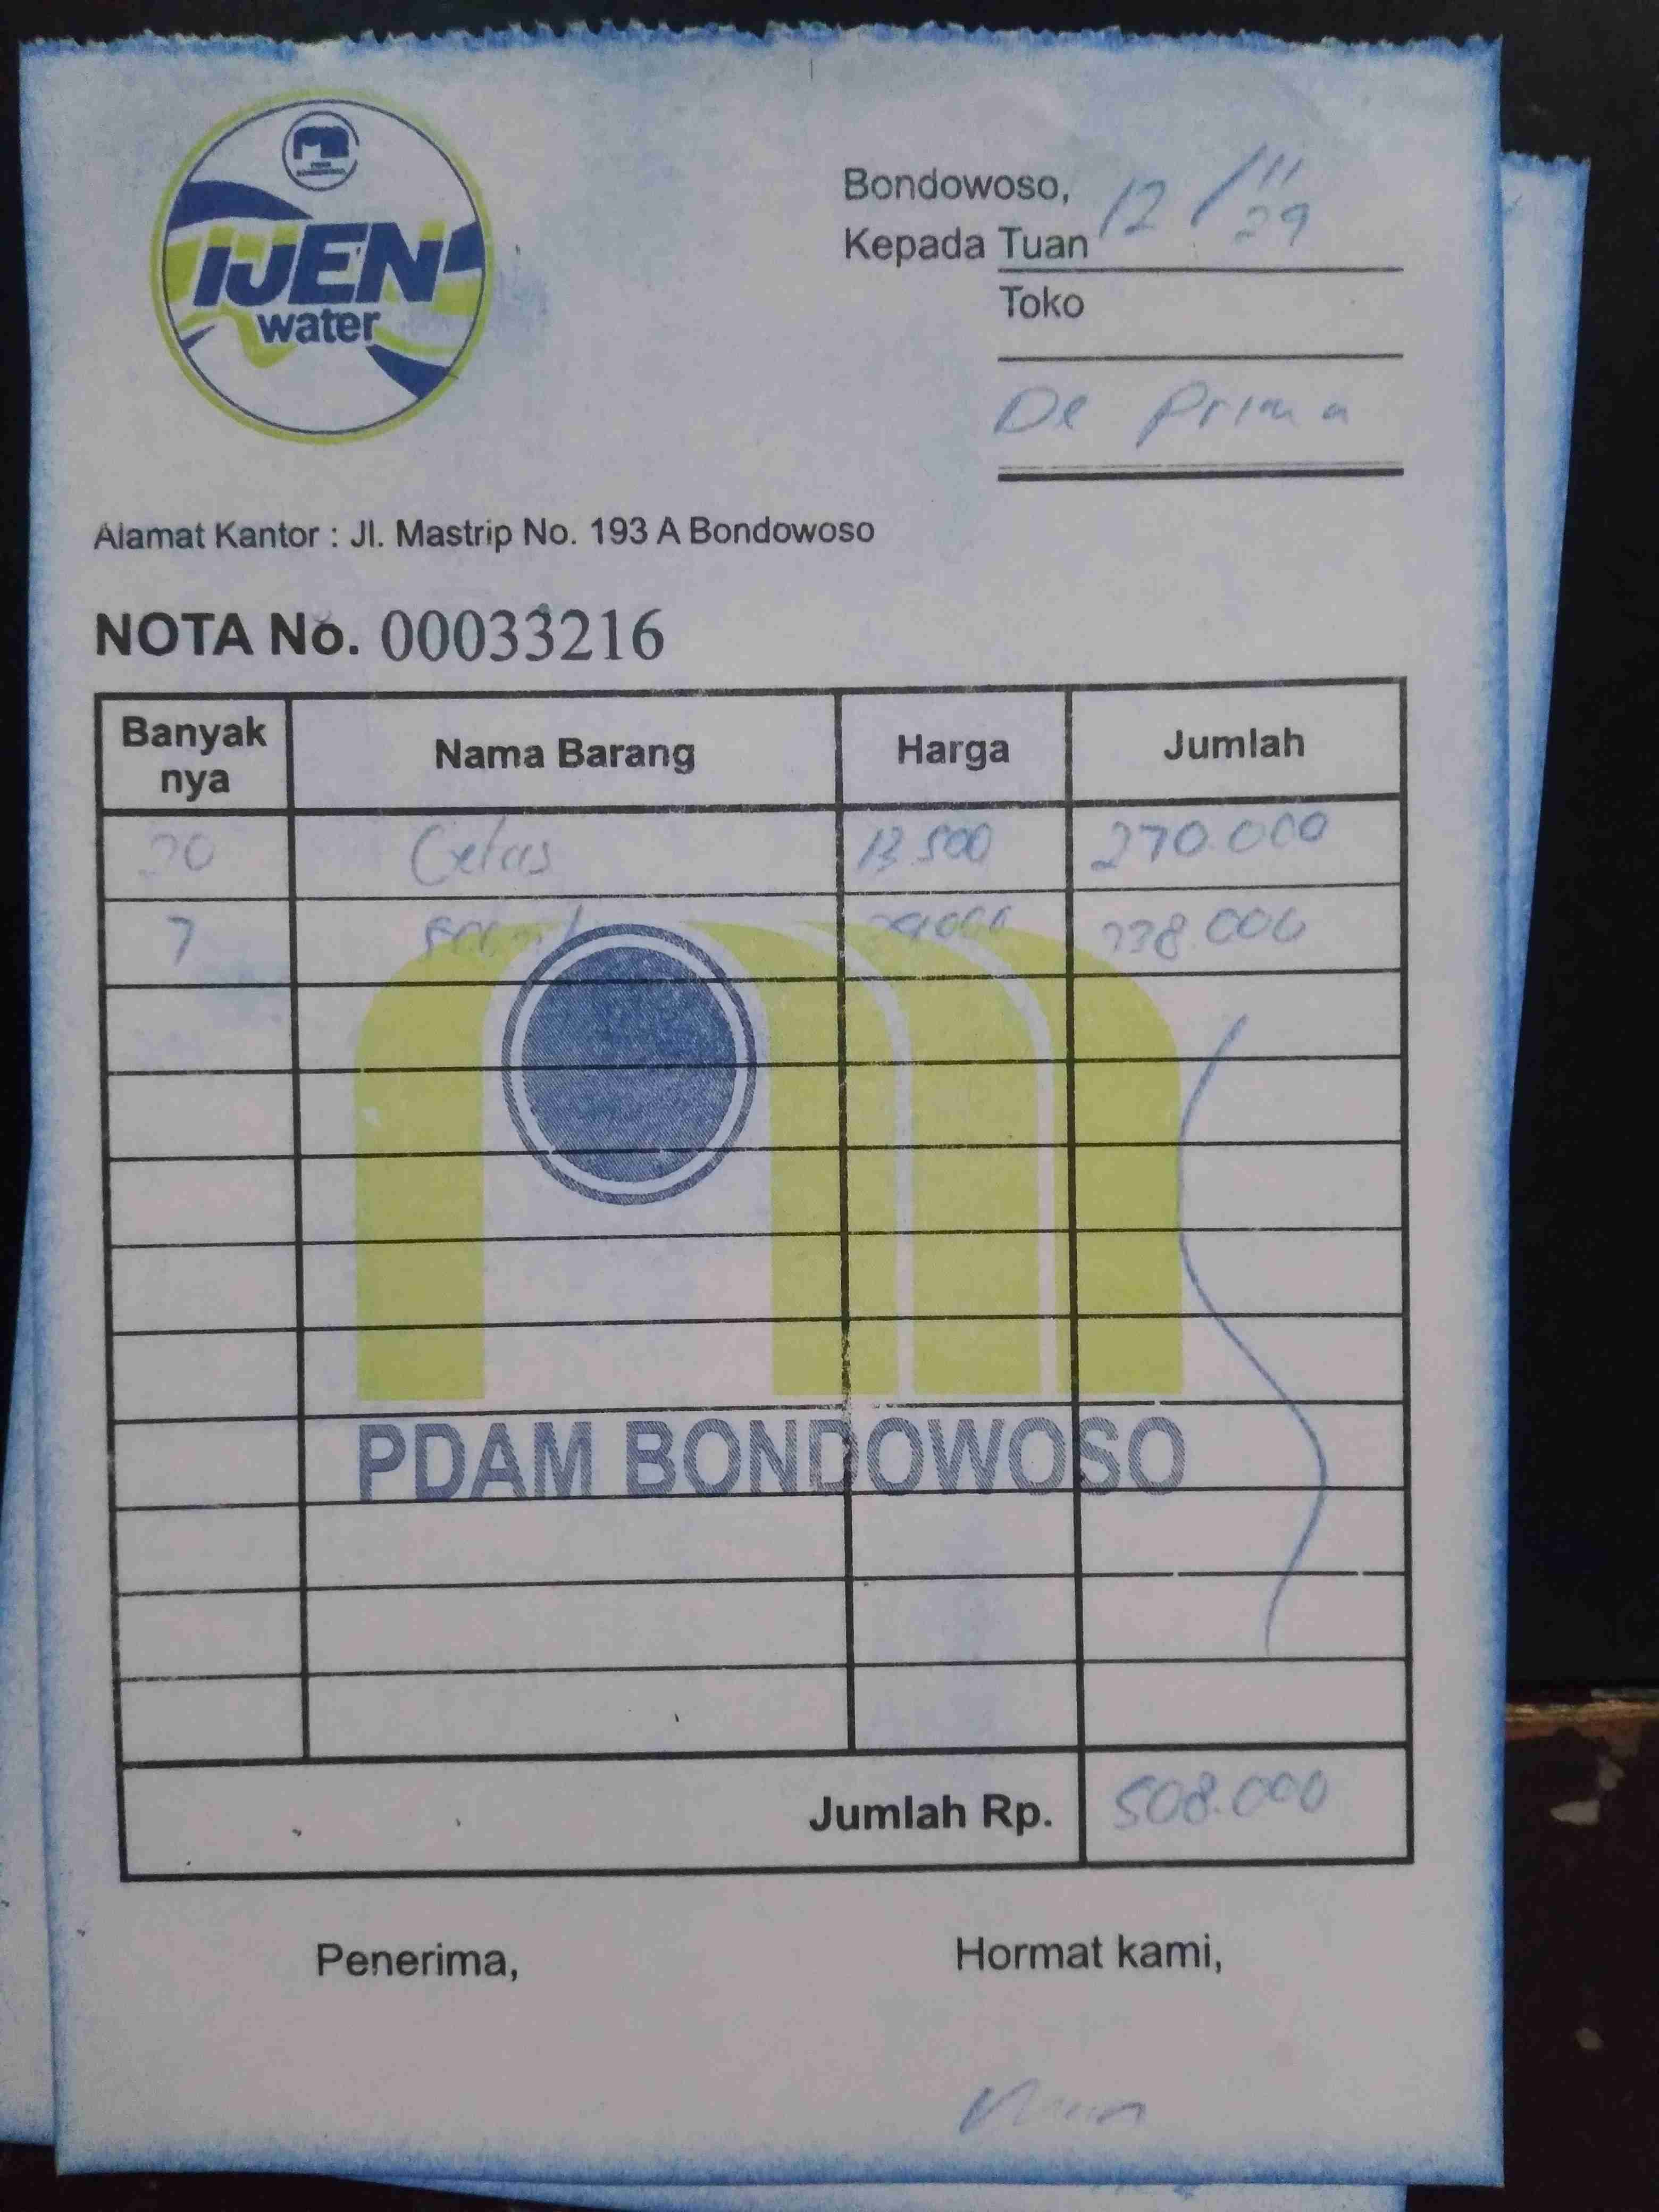 IJEN
water
Bondowoso, 12 / 11
Kepada Tuan
Toko
De Prima
Alamat Kantor : Jl. Mastrip No. 193 A Bondowoso
NOTA No. 00033216
Banyak nya Nama Barang Harga Jumlah
20 Gelas 13.500 270.000
7 34.000 238.000
PDAM BONDOWOSO
Jumlah Rp. 508.000
Penerima, Hormat kami,